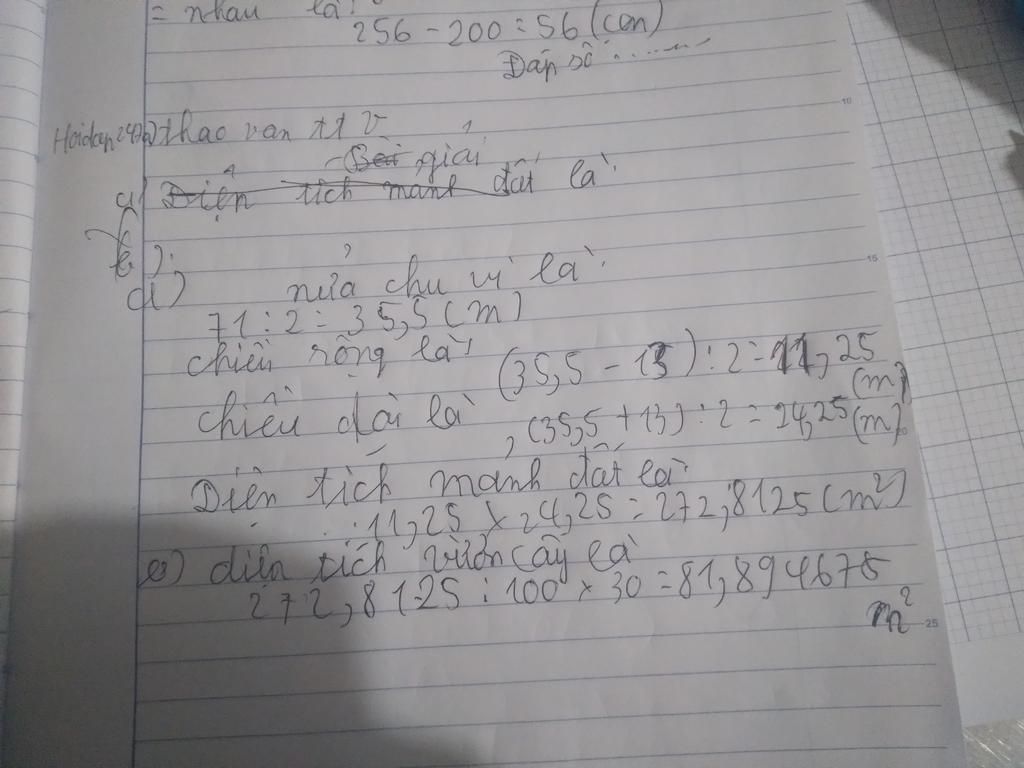 = nhau là:
256 - 200 = 56 (con)
Đáp số:......
thao van tt v
Bài giải
a) Diện tích manh đất là:
b):
a) nửa chu vi là:
71 : 2 = 35,5 (m)
chiều rộng là: (35,5 - 13) : 2 = 11,25 (m)
chiều dài là (35,5 + 13) : 2 = 24,25 (m)
Diện tích mảnh đất là:
11,25 x 24,25 = 272,8125 (m²)
b) diện tích vườn cây là
272,8125 : 100 x 30 = 81,894675
m²
10
15
20
25